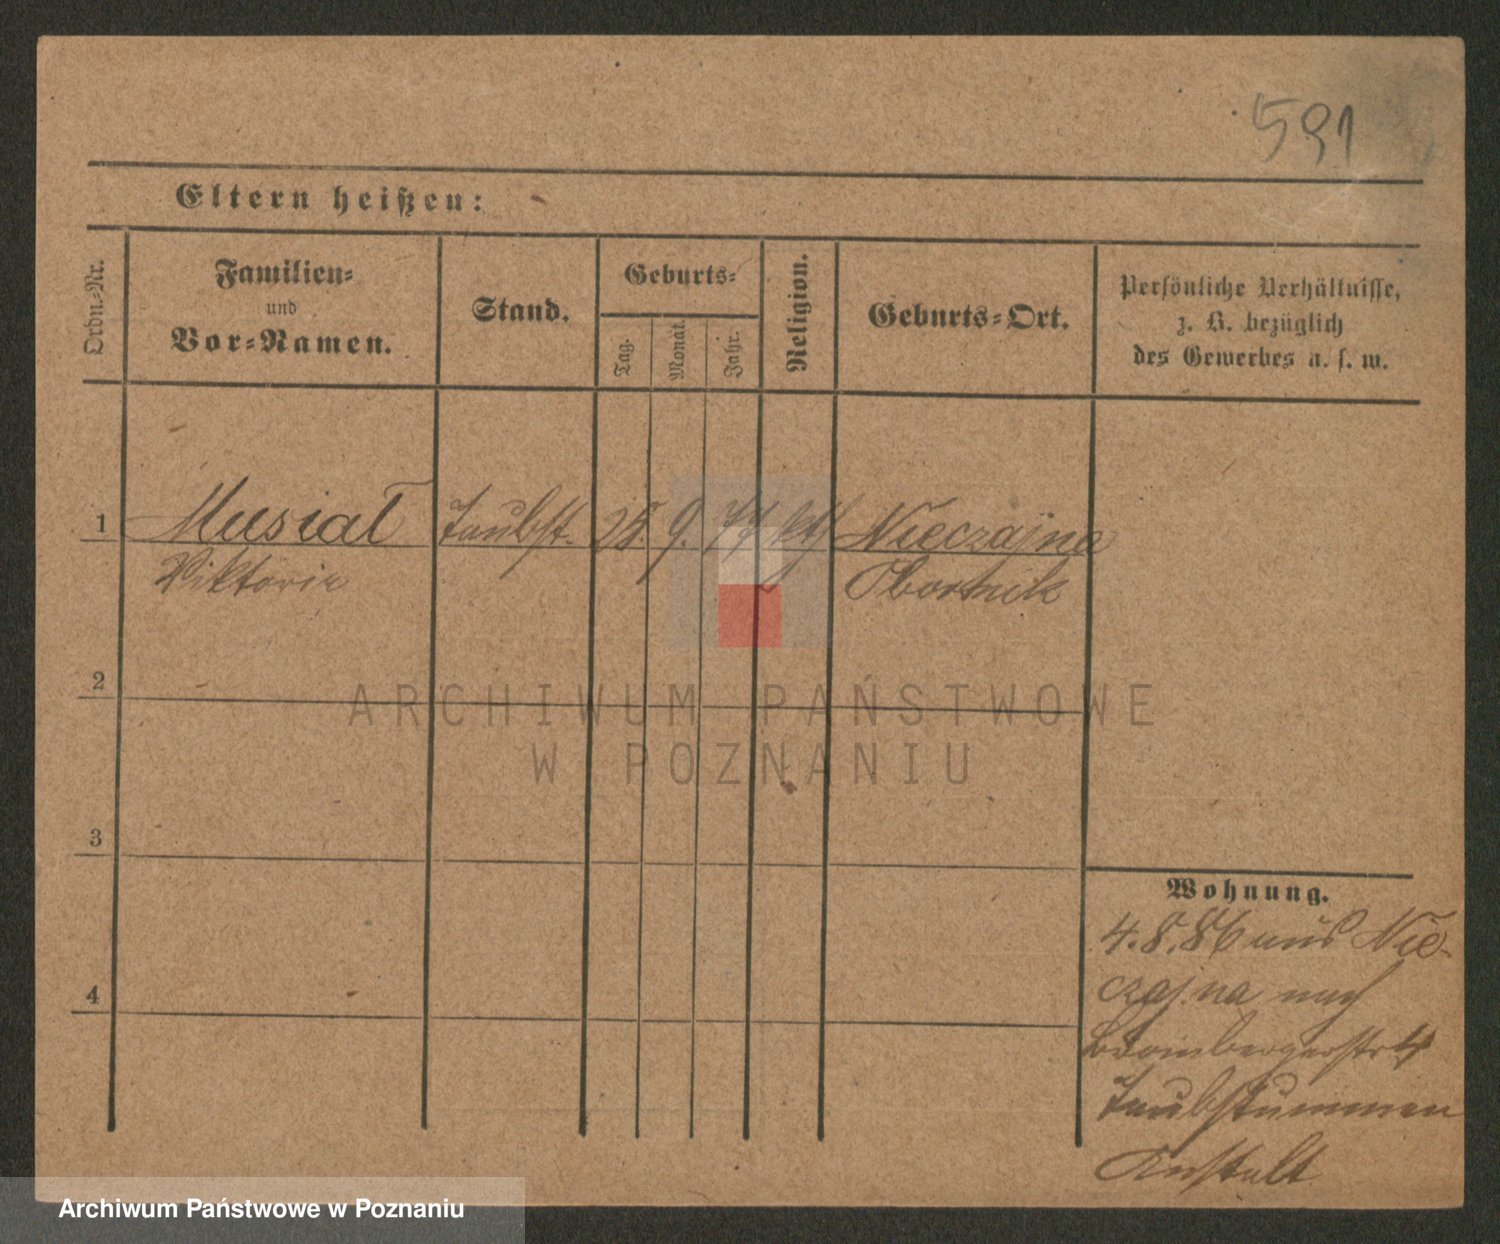 591
Eltern heißen:
Ordn.-Nr.
Familien-
und
Vor-Namen.
Stand.
Geburts-
Tag.
Monat.
Jahr.
Religion.
Geburts-Ort.
Persönliche Verhältnisse,
z. B. bezüglich
des Gewerbes u. s. w.
1 Musiał Taubst. 28. 9. 77 kth Nieczajna
Viktoria Obornik
2
3
4
Wohnung.
4.8.86 aus Nie-
czajna nach
Brombergerstr 4
Taubstummen
Anstalt
ARCHIWUM PAŃSTWOWE
W POZNANIU
Archiwum Państwowe w Poznaniu